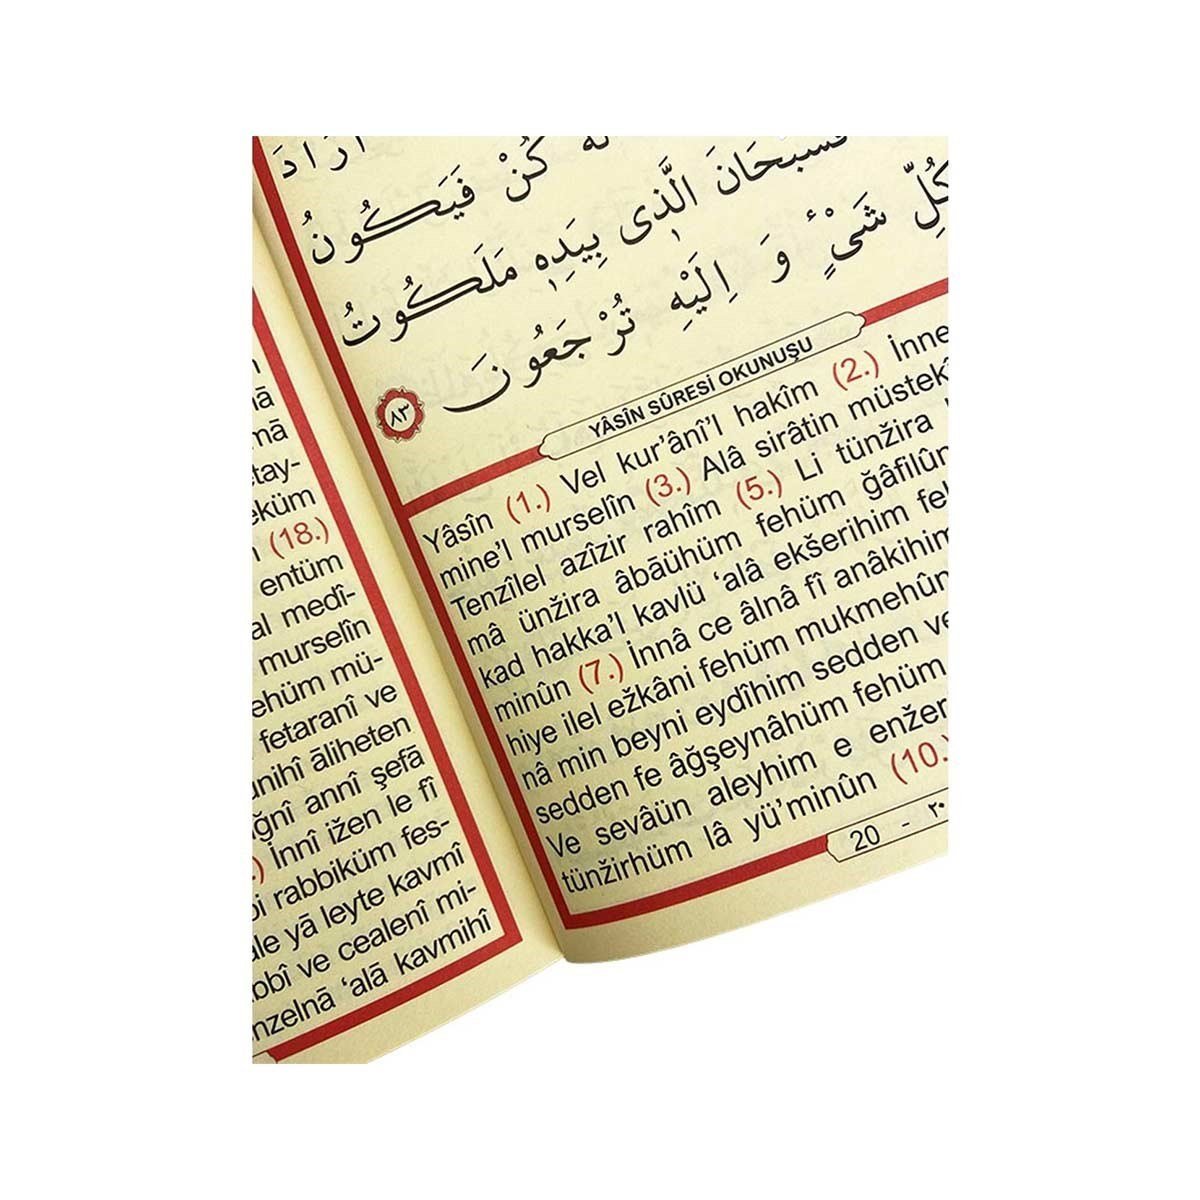 اَرَادَ
لَهُ كُنْ فَيَكُونُ
فَسُبْحَانَ الَّذِى بِيَدِهِ مَلَكُوتُ
كُلِّ شَىْءٍ وَ اِلَيْهِ تُرْجَعُونَ
٨٣
YÂSÎN SÛRESİ OKUNUŞU
Yâsîn (1.) Vel kur’ânî’l hakîm (2.) İnne
mine’l murselîn (3.) Alâ sirâtin müstekî
Tenzîlel azîzir rahîm (5.) Li tünžira
mâ ünžira âbāühüm fehüm ğâfilûn
kad hakka’l kavlü ‘alâ ekšerihim feh
minûn (7.) İnnâ ce âlnâ fî anâkihim
hiye ilel ežkâni fehüm mukmehûn
nâ min beyni eydîhim sedden ve
sedden fe âğşeynâhüm fehüm
Ve sevāün aleyhim e enžer
tünžirhüm lâ yü’minûn (10.)
20 - ٢٠
mā
tay-
eküm
(18.)
entüm
al medî-
murselîn
ehüm mü-
fetaranî ve
unihî āliheten
uğnî annî şefā
.) İnnî ižen le fî
bi rabbiküm fes-
ale yā leyte kavmî
bbî ve cealenî mi-
nzelnā ‘alā kavmihî